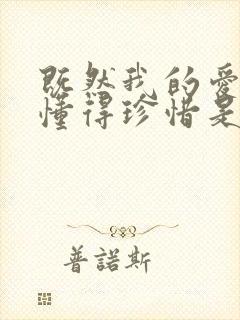 既然我的爱
懂得珍惜是
普諾斯